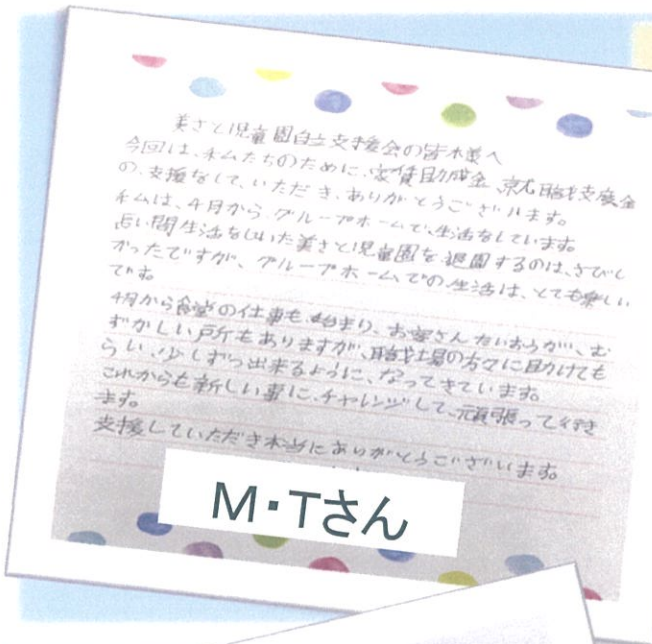 美さと児童園自立支援会の皆様へ
今回は、私たちのために、家賃助成金、就職支度金
の、支援をして、いただき、ありがとうございます。
私は、4月から、グループホームで、生活をしています。
長い間生活をしいた美さと児童園を退園するのは、さびし
かったですが、グループホームでの生活は、とても楽しい
です。
4月から食堂の仕事も、始まり、お客さんたいおうが、む
ずかしい所もありますが、職場の方々に助けても
らい、少しずつ出来るように、なってきています。
これからも新しい事に、チャレンジして、頑張って行き
ます。
支援していただき本当にありがとうございます。
M・Tさん